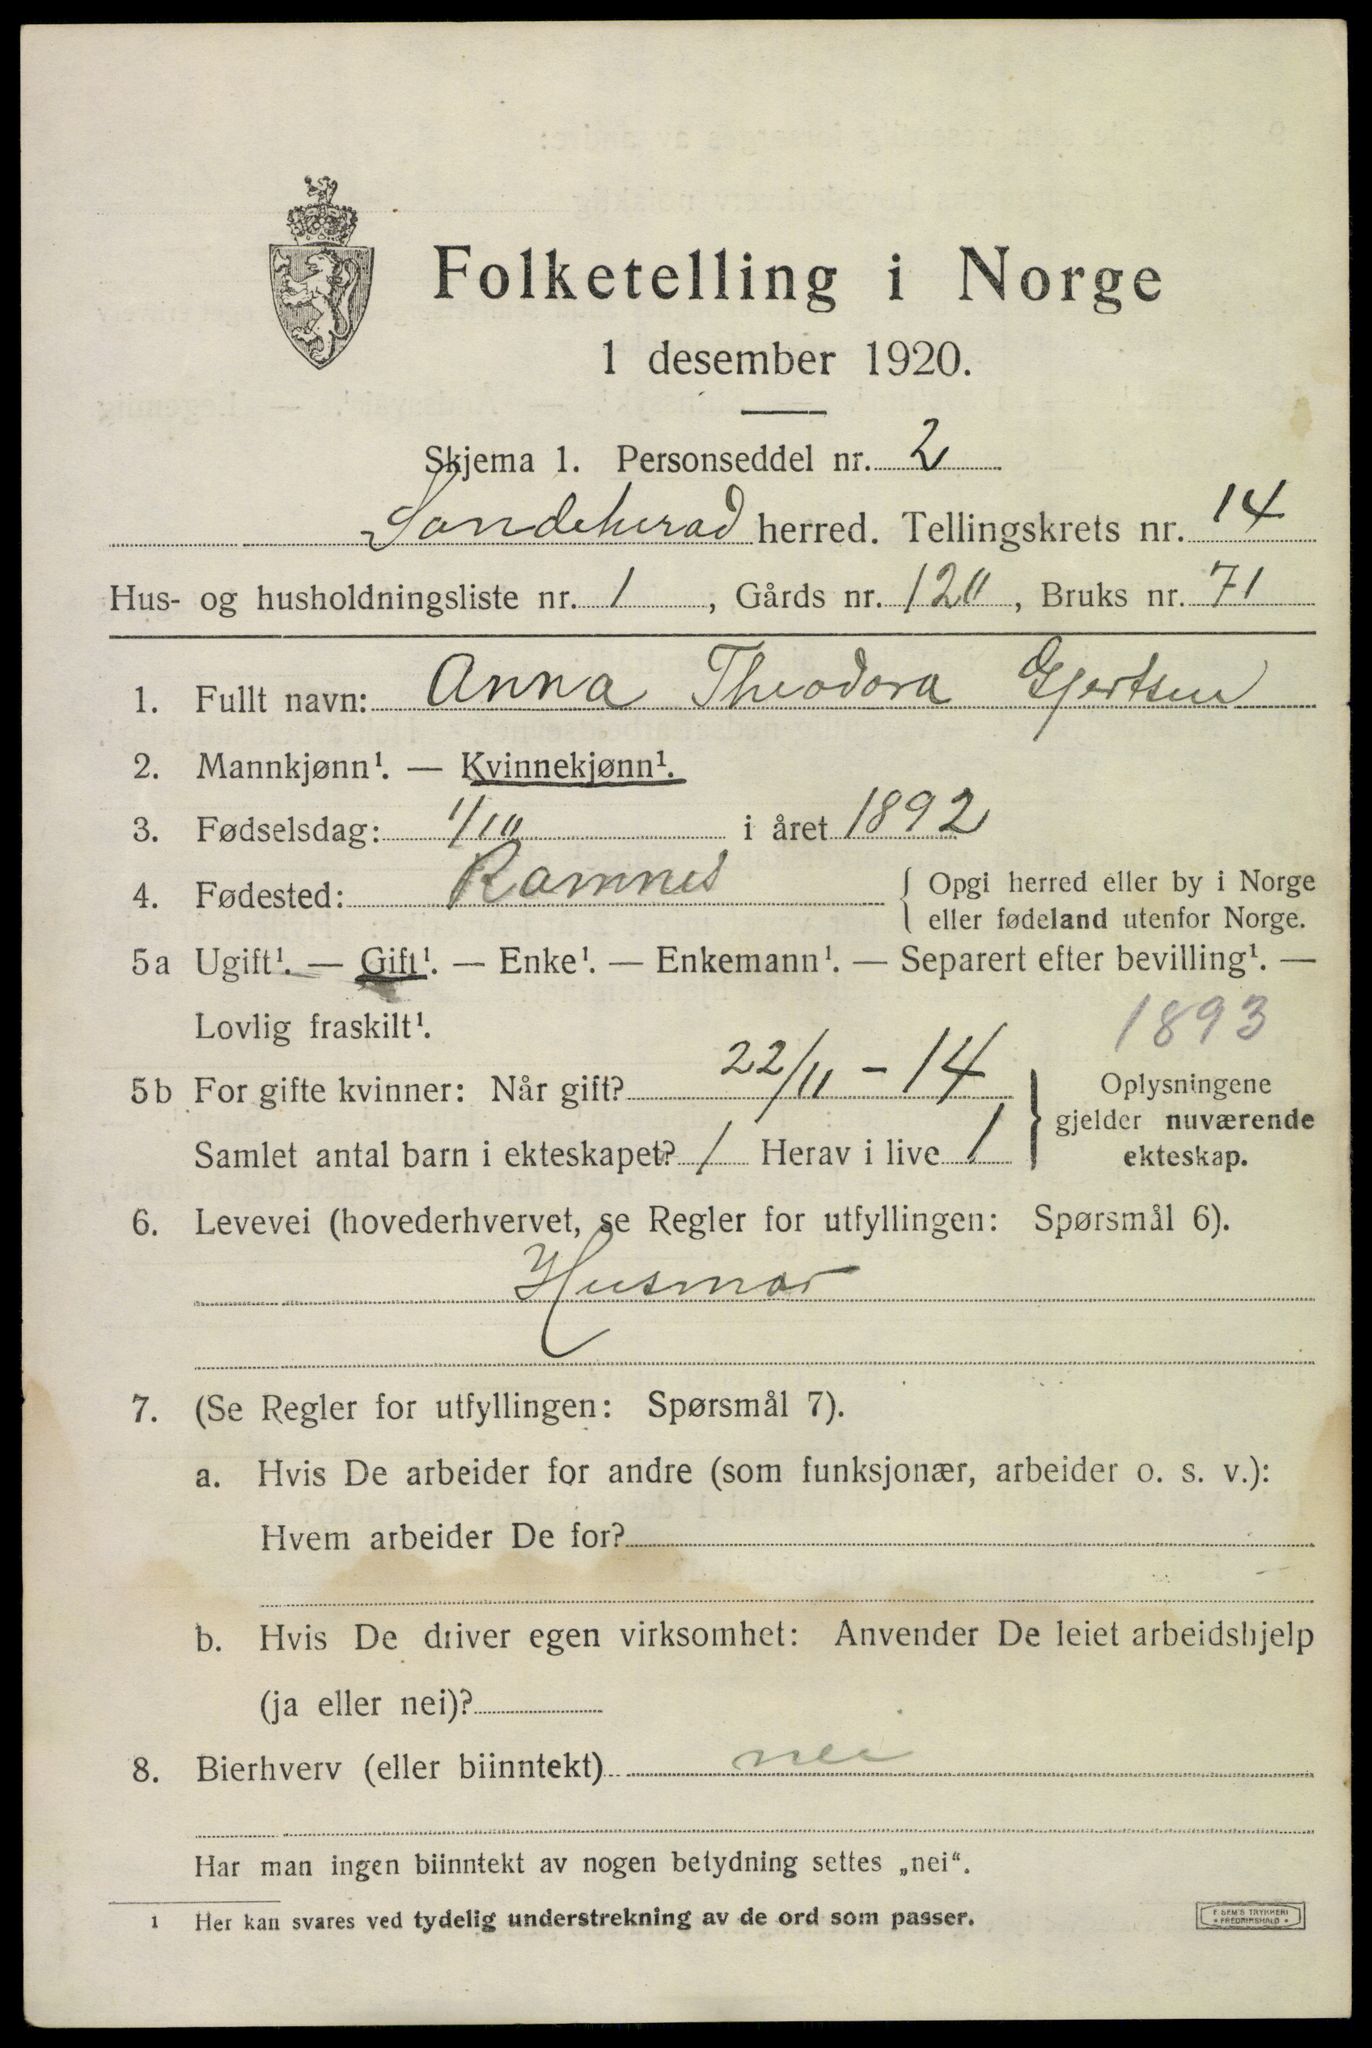 Folketelling i Norge
1 desember 1920.
Skjema 1. Personseddel nr. 2
Sandeherad herred. Tellingskrets nr. 14
Hus- og husholdningsliste nr. 1, Gårds nr. 120, Bruks nr. 71
1. Fullt navn: Anna Theodora Gjertsen
2. Mannkjønn¹. — Kvinnekjønn¹.
3. Fødselsdag: 1/10 i året 1892
4. Fødested: Ramnes { Opgi herred eller by i Norge
eller fødeland utenfor Norge.
5a Ugift¹. — Gift¹. — Enke¹. — Enkemann¹. — Separert efter bevilling¹. —
Lovlig fraskilt¹.
1893
5b For gifte kvinner: Når gift? 22/11 - 14
Samlet antal barn i ekteskapet? 1 Herav i live 1
} Oplysningene
gjelder nuværende
ekteskap.
6. Levevei (hovederhvervet, se Regler for utfyllingen: Spørsmål 6).
Husmor
7. (Se Regler for utfyllingen: Spørsmål 7).
a. Hvis De arbeider for andre (som funksjonær, arbeider o. s. v.):
Hvem arbeider De for?
b. Hvis De driver egen virksomhet: Anvender De leiet arbeidshjelp
(ja eller nei)?
8. Bierhverv (eller biinntekt) nei
Har man ingen biinntekt av nogen betydning settes „nei“.
1 Her kan svares ved tydelig understrekning av de ord som passer.
F. SEM'S TRYKKERI
FREDRIKSHALD